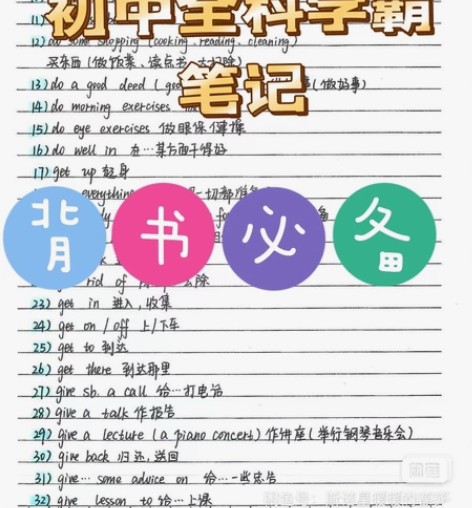 初中全科学霸
笔记
12) do some shopping (cooking, reading, cleaning)
买东西 (做饭菜、读点书、大扫除)
13) do a good deed (做好事)
14) do morning exercises
15) do eye exercises 做眼保健操
16) do well in 在…某方面干得好
17) get up 起身
everything 一切都准备
背书必备
rid of 去除
23) get in 进入,收集
24) get on / off 上/下车
25) get to 到达
26) get there 到达那里
27) give sb. a call 给…打电话
28) give a talk 作报告
29) give a lecture (a piano concert) 作讲座 (举行钢琴音乐会)
30) give back 归还,送回
31) give… some advice on 给…一些忠告
32) give lesson to 给…上课
闲鱼